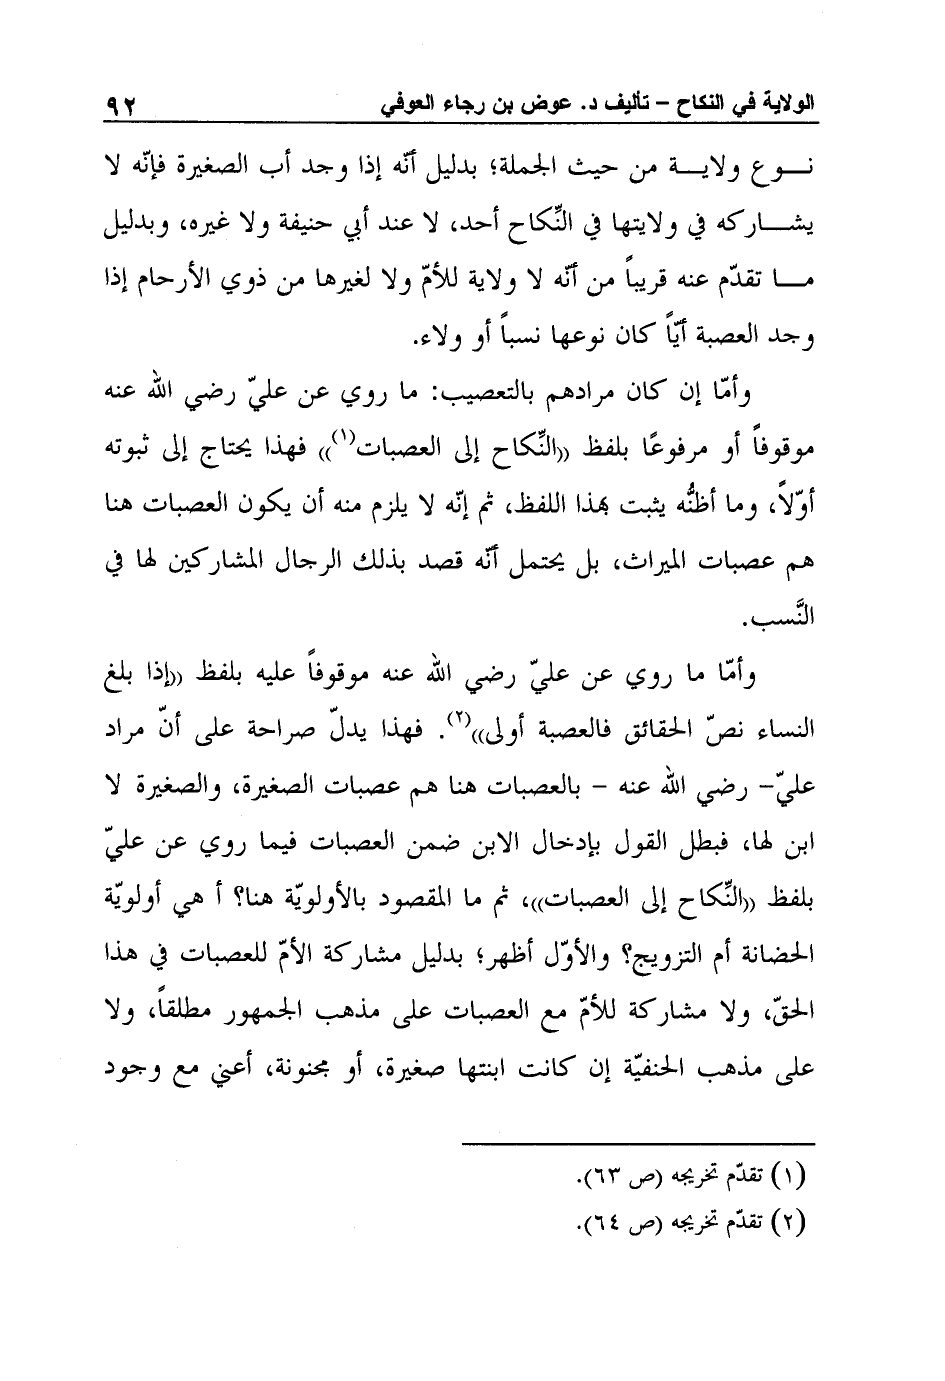 الولاية في النكاح – تأليف د. عوض بن رجاء العوفي ٩٢
نوع ولاية من حيث الجملة؛ بدليل أنّه إذا وجد أب الصغيرة فإنّه لا
يشاركه في ولايتها في النِّكاح أحد، لا عند أبي حنيفة ولا غيره، وبدليل
ما تقدّم عنه قريباً من أنّه لا ولاية للأمّ ولا لغيرها من ذوي الأرحام إذا
وجد العصبة أيّاً كان نوعها نسباً أو ولاء.
وأمّا إن كان مرادهم بالتعصيب: ما روي عن عليّ رضي الله عنه
موقوفاً أو مرفوعًا بلفظ ((النِّكاح إلى العصبات(١))) فهذا يحتاج إلى ثبوته
أوّلاً، وما أظنُّه يثبت بهذا اللفظ، ثم إنّه لا يلزم منه أن يكون العصبات هنا
هم عصبات الميراث، بل يحتمل أنّه قصد بذلك الرجال المشاركين لها في
النَّسب.
وأمّا ما روي عن عليّ رضي الله عنه موقوفاً عليه بلفظ ((إذا بلغ
النساء نصّ الحقائق فالعصبة أولى))(٢). فهذا يدلّ صراحة على أنّ مراد
عليّ– رضي الله عنه – بالعصبات هنا هم عصبات الصغيرة، والصغيرة لا
ابن لها، فبطل القول بإدخال الابن ضمن العصبات فيما روي عن عليّ
بلفظ ((النِّكاح إلى العصبات))، ثم ما المقصود بالأولويّة هنا؟ أ هي أولويّة
الحضانة أم التزويج؟ والأوّل أظهر؛ بدليل مشاركة الأمّ للعصبات في هذا
الحقّ، ولا مشاركة للأمّ مع العصبات على مذهب الجمهور مطلقاً، ولا
على مذهب الحنفيّة إن كانت ابنتها صغيرة، أو مجنونة، أعني مع وجود
(١) تقدّم تخريجه (ص ٦٣).
(٢) تقدّم تخريجه (ص ٦٤).